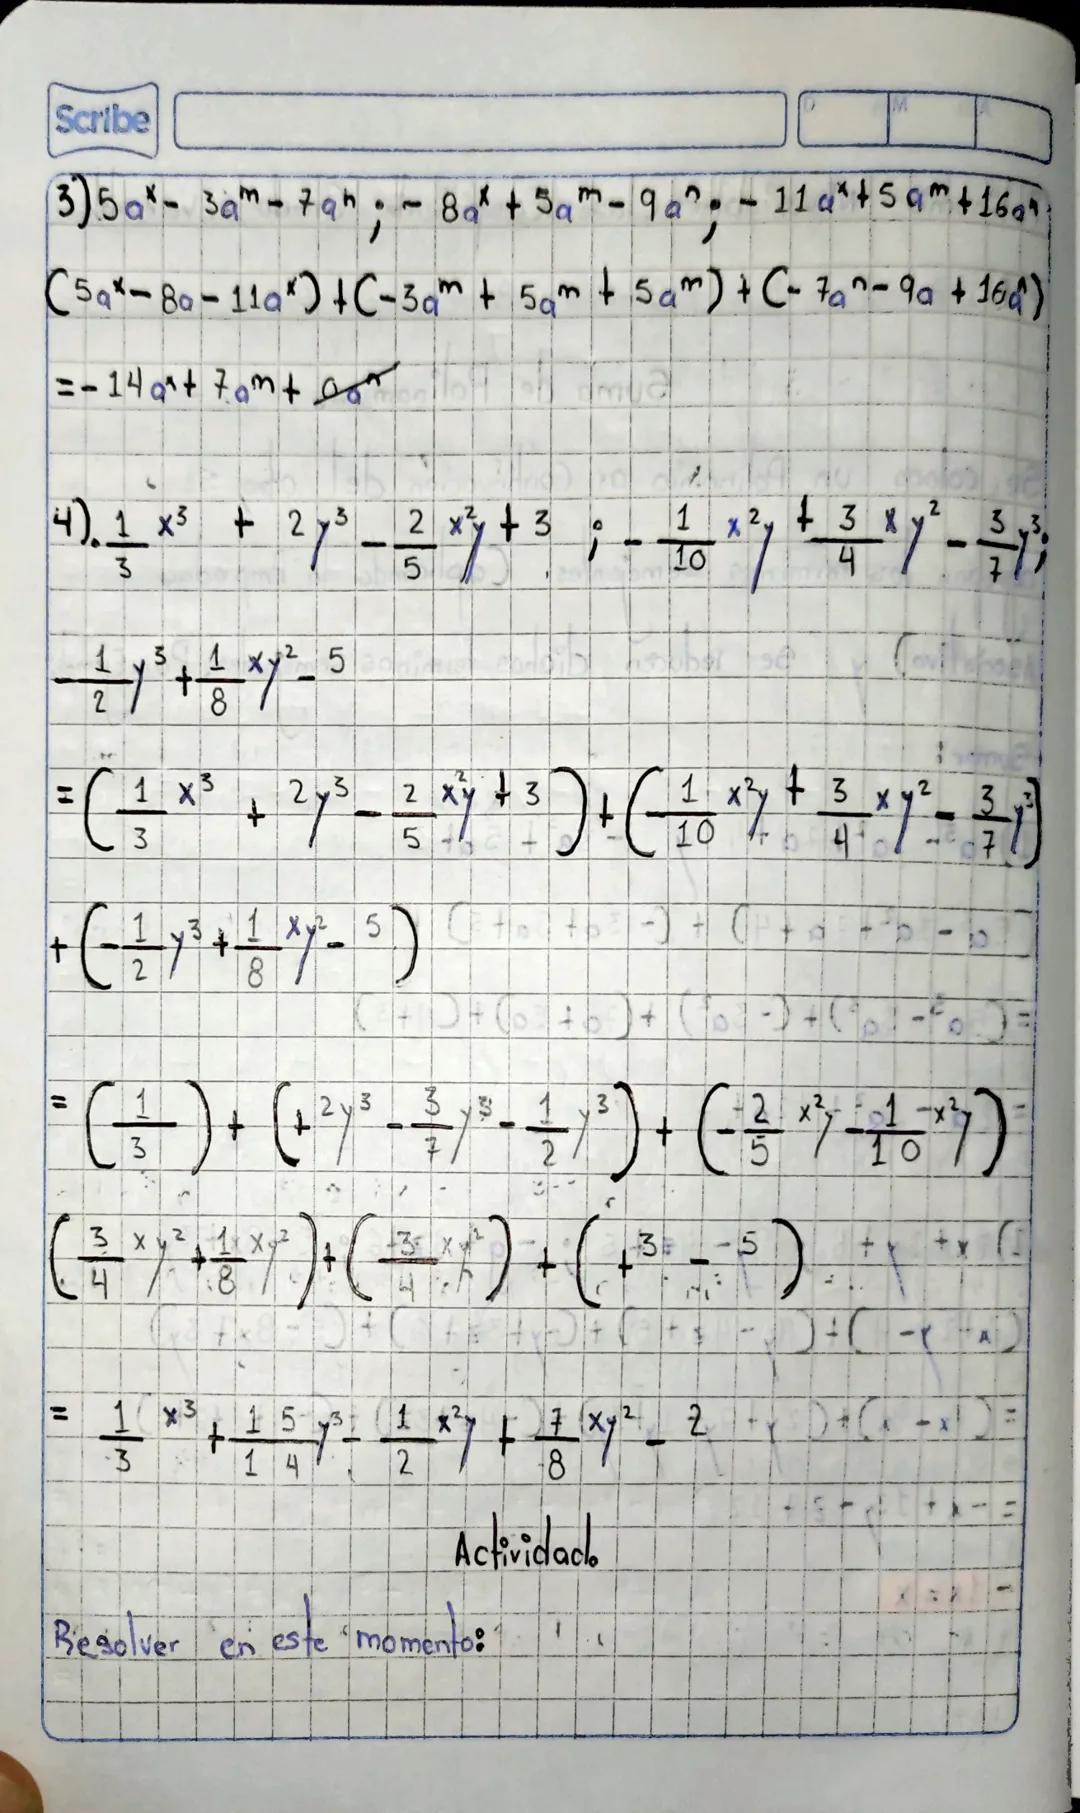 Scribe
D M A
3) 5a^x - 3a^m - 7a^n ; - 8a^x + 5a^m - 9a^n ; - 11a^x + 5a^m + 16a^n
(5a^x - 8a - 11a^x) + (-3a^m + 5a^m + 5a^m) + (- 7a^n - 9a + 16a^n)
= - 14a^x + 7a^m + 0a^n
4). 1/3 x³ + 2y³ - 2/5 x²y + 3 ; - 1/10 x²y + 3/4 xy² - 3/7 y³;
- 1/2 y³ + 1/8 xy² - 5
= (1/3 x³ + 2y³ - 2/5 x²y + 3) + (- 1/10 x²y + 3/4 xy² - 3/7 y³)
+ (- 1/2 y³ + 1/8 xy² - 5)
= (1/3) + (+ 2y³ - 3/7 y³ - 1/2 y³) + (- 2/5 x²y - 1/10 - x²y)
(3/4 xy² + 1/8 xy²) + (3/4 xy²) + (+3 - -5)
= 1/3 x³ + 15/14 y³ - 1/2 x²y + 7/8 xy² - 2
Actividad.
Resolver en este momento: